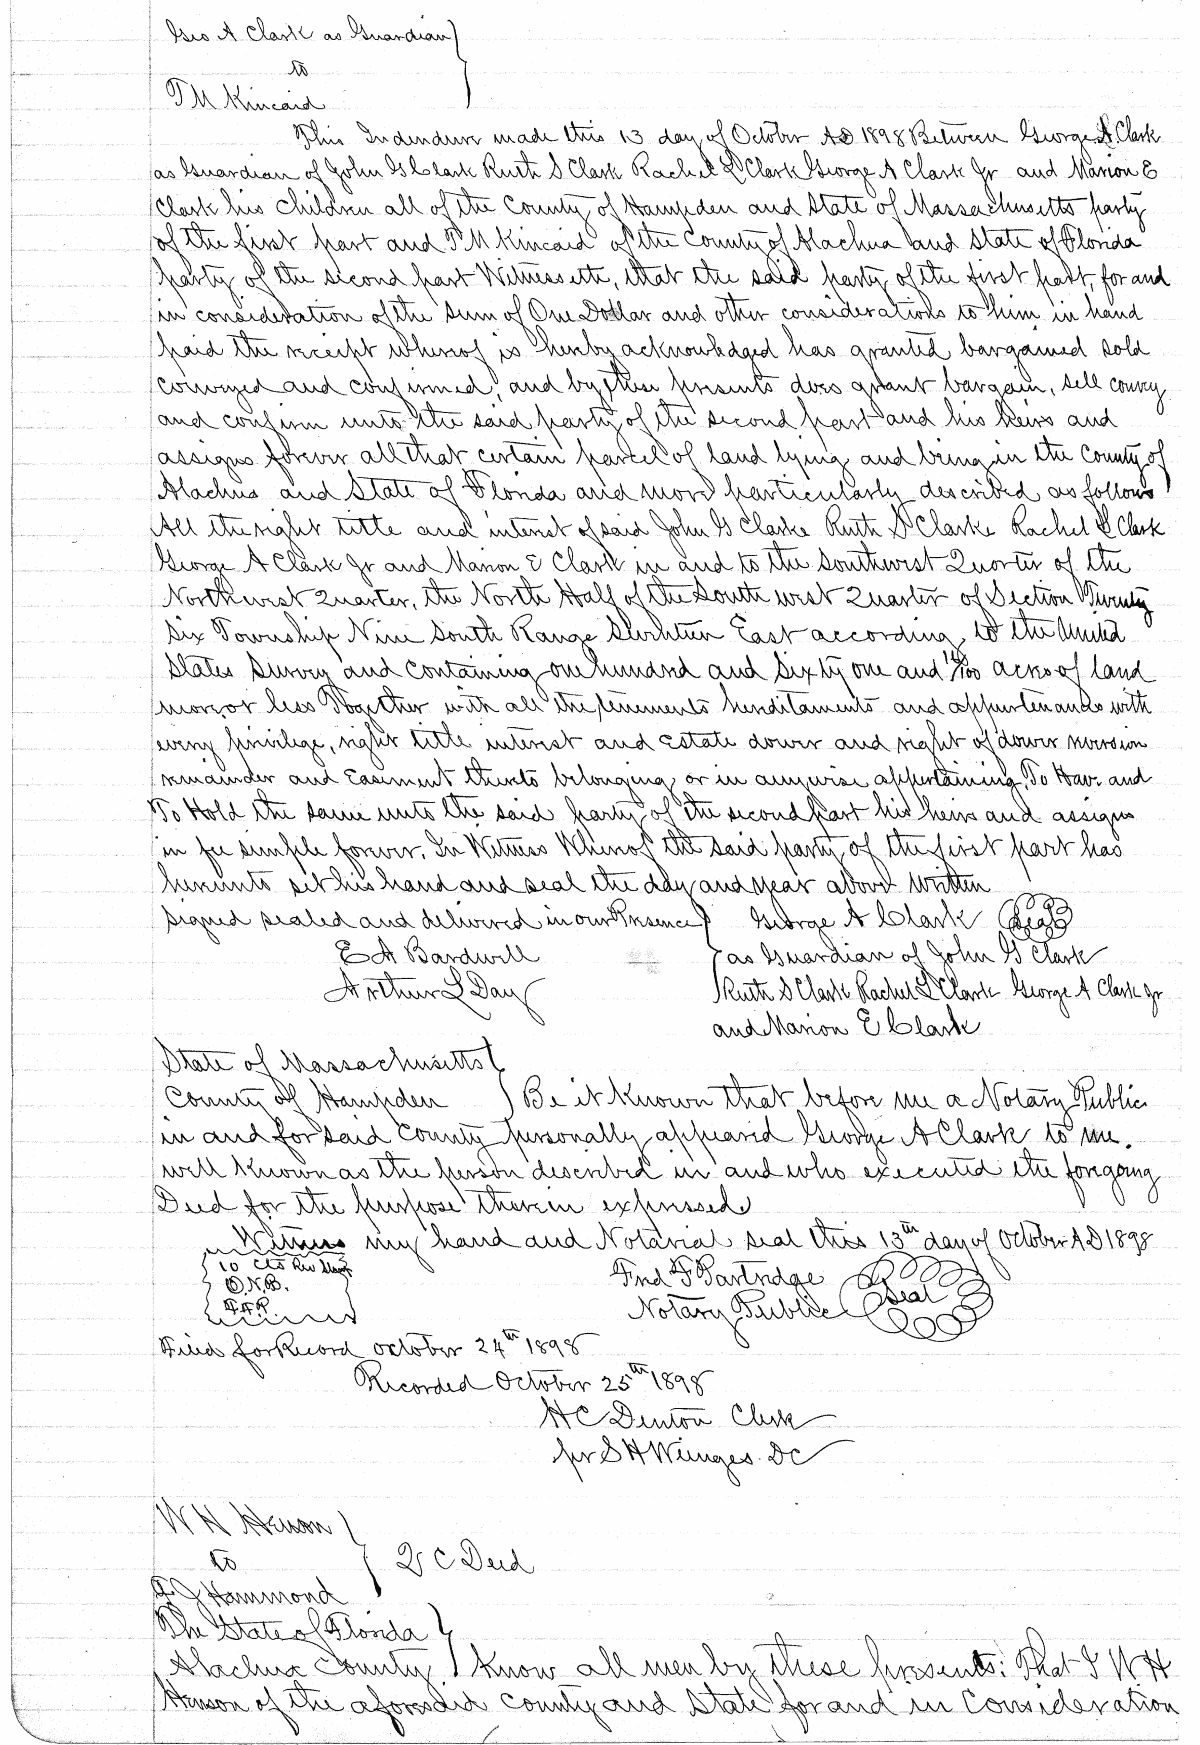 Geo A Clark as Guardian
to
T M Kincaid
This Indendure made this 13 day of October AD 1898 Between George A Clark
as Guardian of John G Clark Ruth S Clark Rachel L Clark George A Clark Jr and Marion E
Clark his children all of the County of Hampden and State of Massachusetts party
of the first part and T M Kincaid of the County of Alachua and State of Florida
party of the second part Witnesseth, that the said party of the first part, for and
in consideration of the sum of One Dollar and other considerations to him in hand
paid the receipt whereof is hereby acknowledged has granted bargained sold
conveyed and confirmed, and by these presents does grant bargain, sell convey
and confirm unto the said party of the second part and his heirs and
assigns forever all that certain parcel of land lying and being in the County of
Alachua and State of Florida and more particularly described as follows
All the right title and interest of said John G Clarke Ruth S Clarke Rachel L Clark
George A Clark Jr and Marion E Clark in and to the Southwest Quarter of the
Northwest Quarter, the North Half of the South west Quarter of Section Twenty
Six Township Nine South Range East according to the United
States Survey and containing one hundred and sixty one and /100 acres of land
more or less Together with all the tenements hereditaments and appurtenances with
every privilege, right title interest and estate dower and right of dower reversion
remainder and easement thereto belonging or in anywise appertaining, To Have and
To Hold the same unto the said party of the second part his heirs and assigns
in fee simple forever. In Witness Whereof the said party of the first part has
hereunto set his hand and seal the day and year above written
Signed sealed and delivered in our Presence George A Clark Seal
E A Bardwell as Guardian of John G Clark
Arthur L Day Ruth S Clark Rachel L Clark George A Clark Jr
and Marion E Clark
State of Massachusetts
County of Hampden Be it Known that before me a Notary Public
in and for said County personally appeared George A Clark to me
well known as the person described in and who executed the foregoing
Deed for the purpose therein expressed
Witness my hand and Notarial seal this 13th day of October AD 1898
10 cts Rev Stamp Fred F Partridge Seal
O.N.B. Notary Public
F.F.P.
Filed for Record October 24th 1898
Recorded October 25th 1898
H C Denton Clerk
pr S H Wienges DC
W H Henson
to Q C Deed
F J Hammond
The State of Florida
Alachua County Know all men by these presents: That I W H
Henson of the aforesaid County and State for and in Consideration